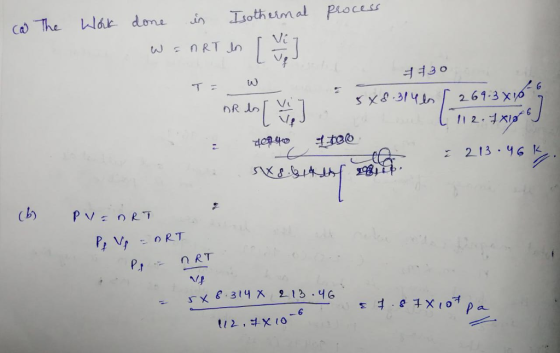 (a) The Work done in Isothermal process
W = nRT ln [Vi/Vf]
T = W / nR ln [Vi/Vf] = 7730 / 5 × 8.314 ln [269.3×10⁻⁶ / 112.7×10⁻⁶]
= = 213.46 K
=
(b) PV = nRT
Pf Vf = nRT
Pf = nRT / Vf
= 5 × 8.314 × 213.46 / 112.7×10⁻⁶ = 7.87×10⁷ Pa